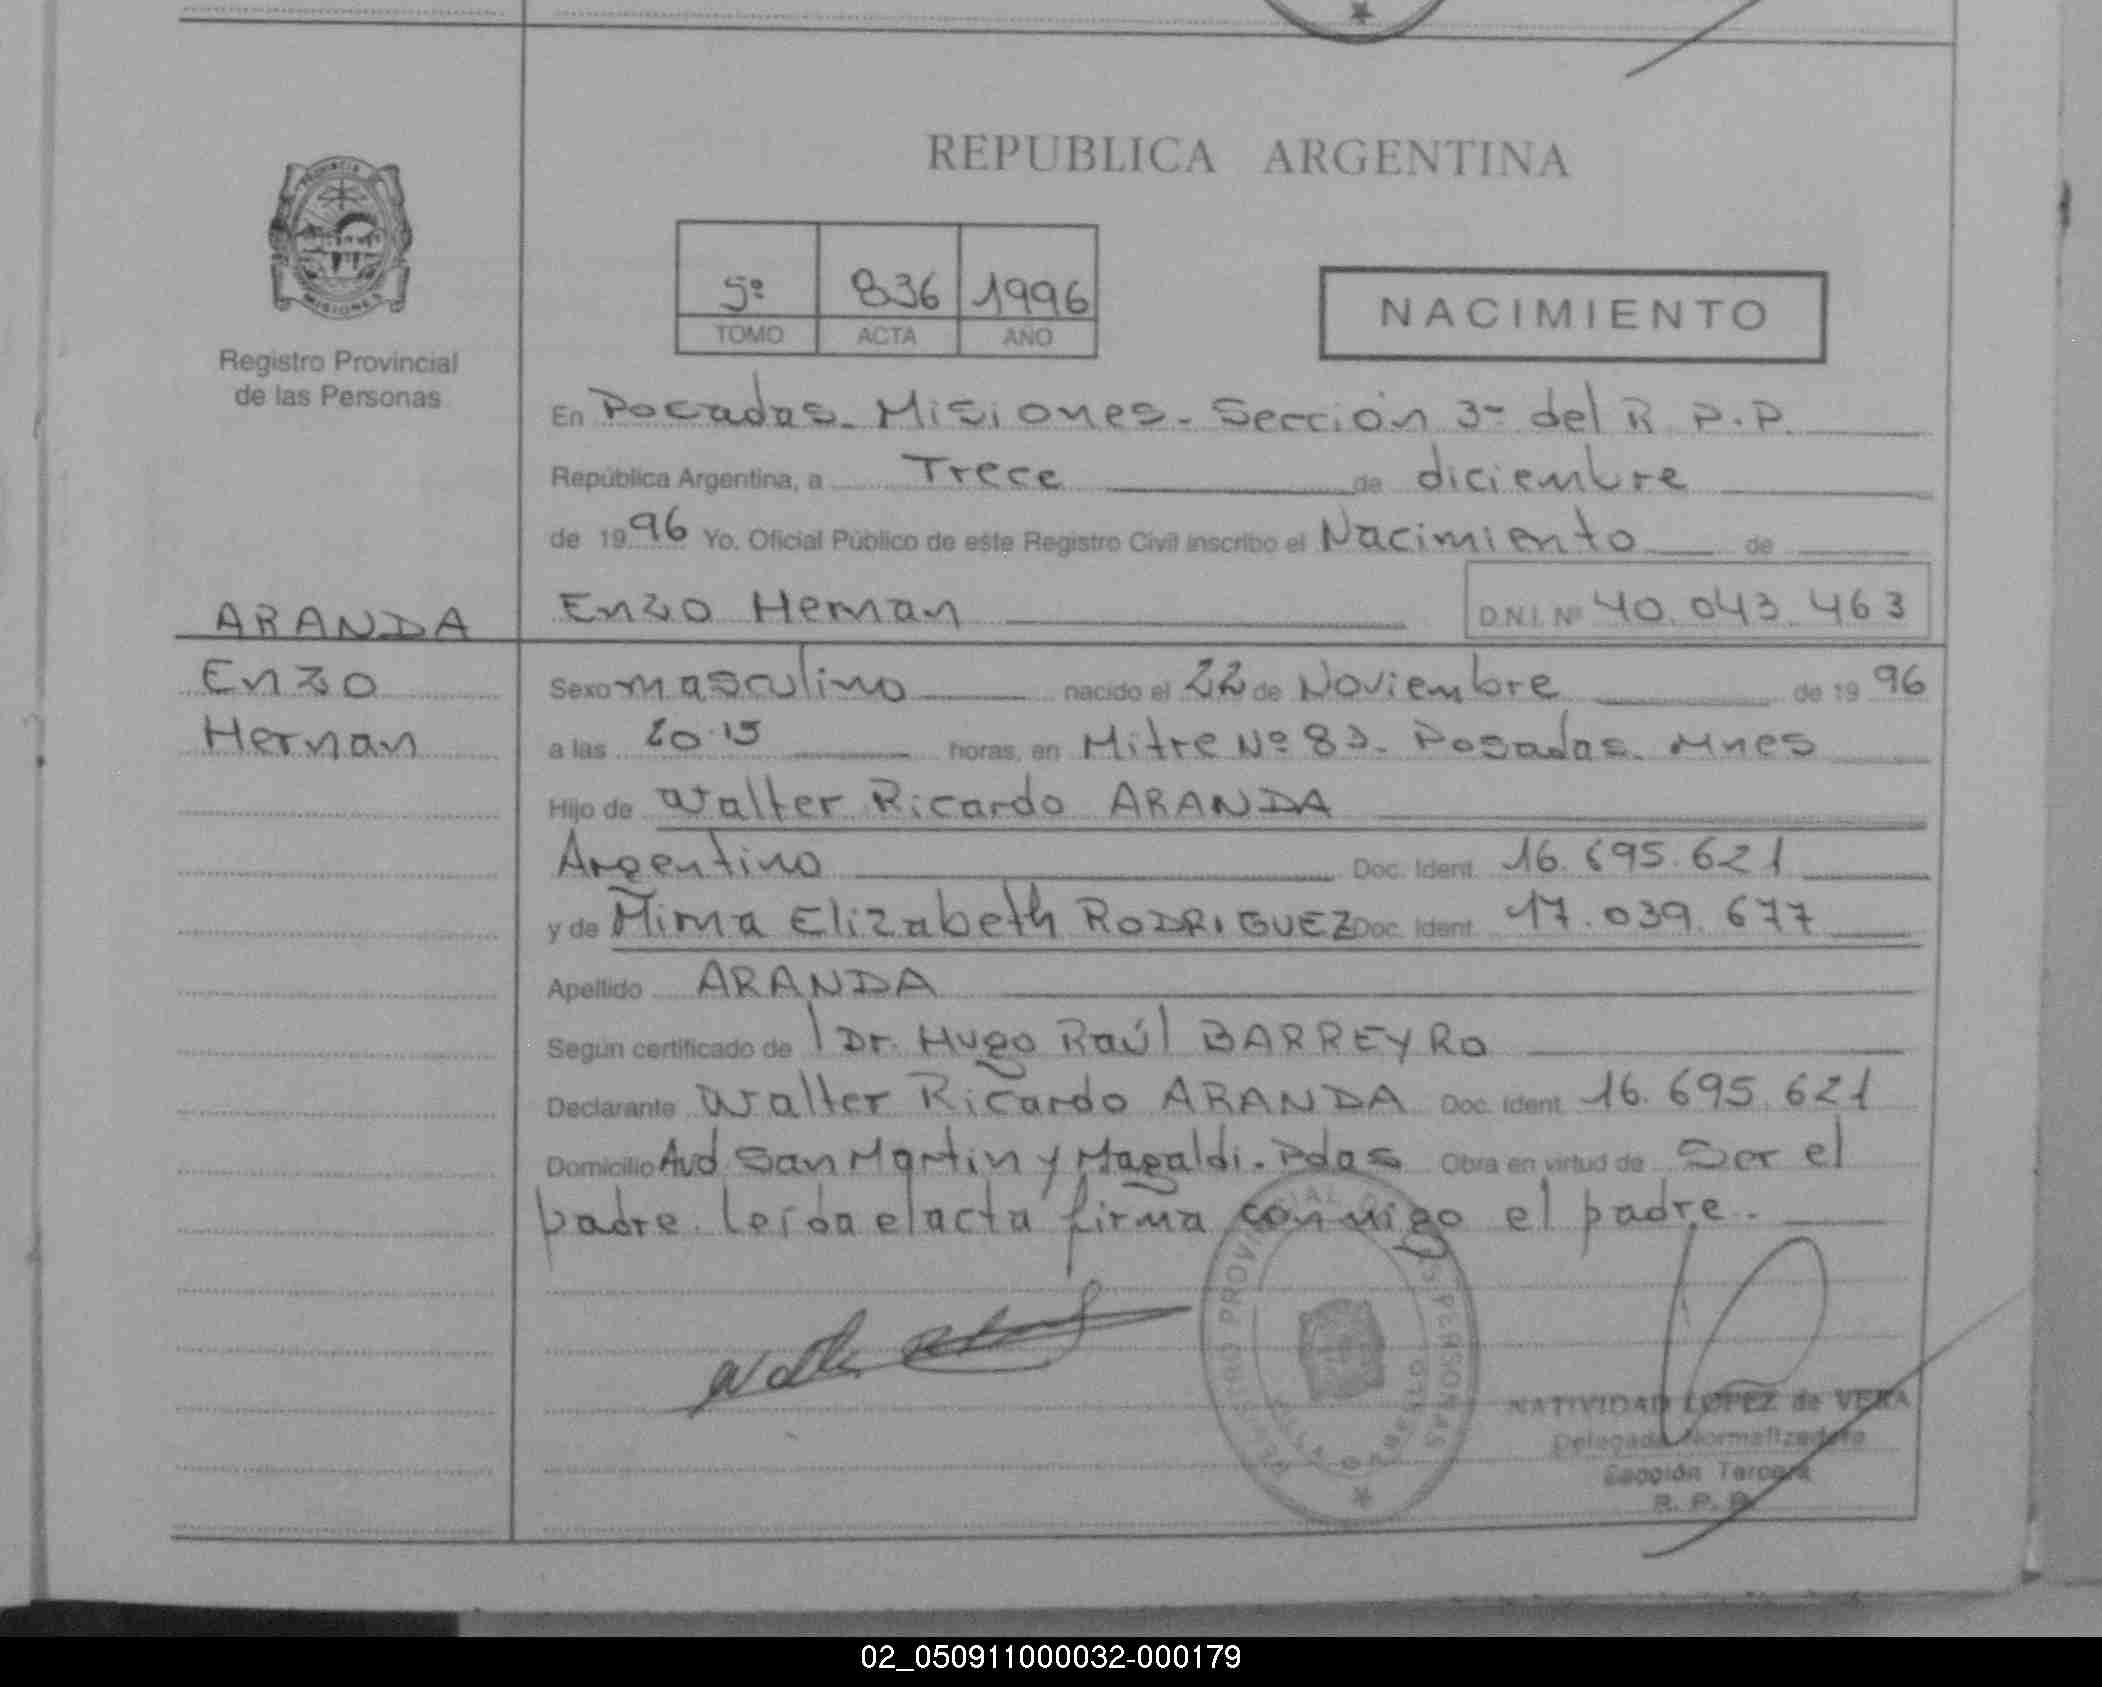 REPUBLICA ARGENTINA
PROVINCIA
MISIONES
Registro Provincial
de las Personas
5º 836 1996
TOMO ACTA AÑO
NACIMIENTO
En Posadas. Misiones. Sección 3ª del R. P. P.
República Argentina, a Trece de diciembre
de 1996 Yo. Oficial Público de este Registro Civil inscribo el Nacimiento de
ARANDA Enzo Hernan D.N.I. Nº 40.043.463
Enzo Sexo masculino nacido el 22 de Noviembre de 1996
Hernan a las 20.15 horas, en Mitre Nº 83. Posadas. Mnes
Hijo de Walter Ricardo ARANDA
Argentino Doc. Ident. 16.695.621
y de Mirna Elizabeth RODRIGUEZ Doc. Ident. 17.039.677
Apellido ARANDA
Según certificado de Dr. Hugo Raúl BARREYRO
Declarante Walter Ricardo ARANDA Doc. Ident. 16.695.621
Domicilio Avd. San Martin y Magaldi. Pdas Obra en virtud de Ser el
padre. Leída el acta firma conmigo el padre.
REGISTRO PROVINCIAL DE LAS PERSONAS
NATIVIDAD LOPEZ de VERA
Delegada Normalizadora
Sección Tercera
R. P. P.
02_050911000032-000179